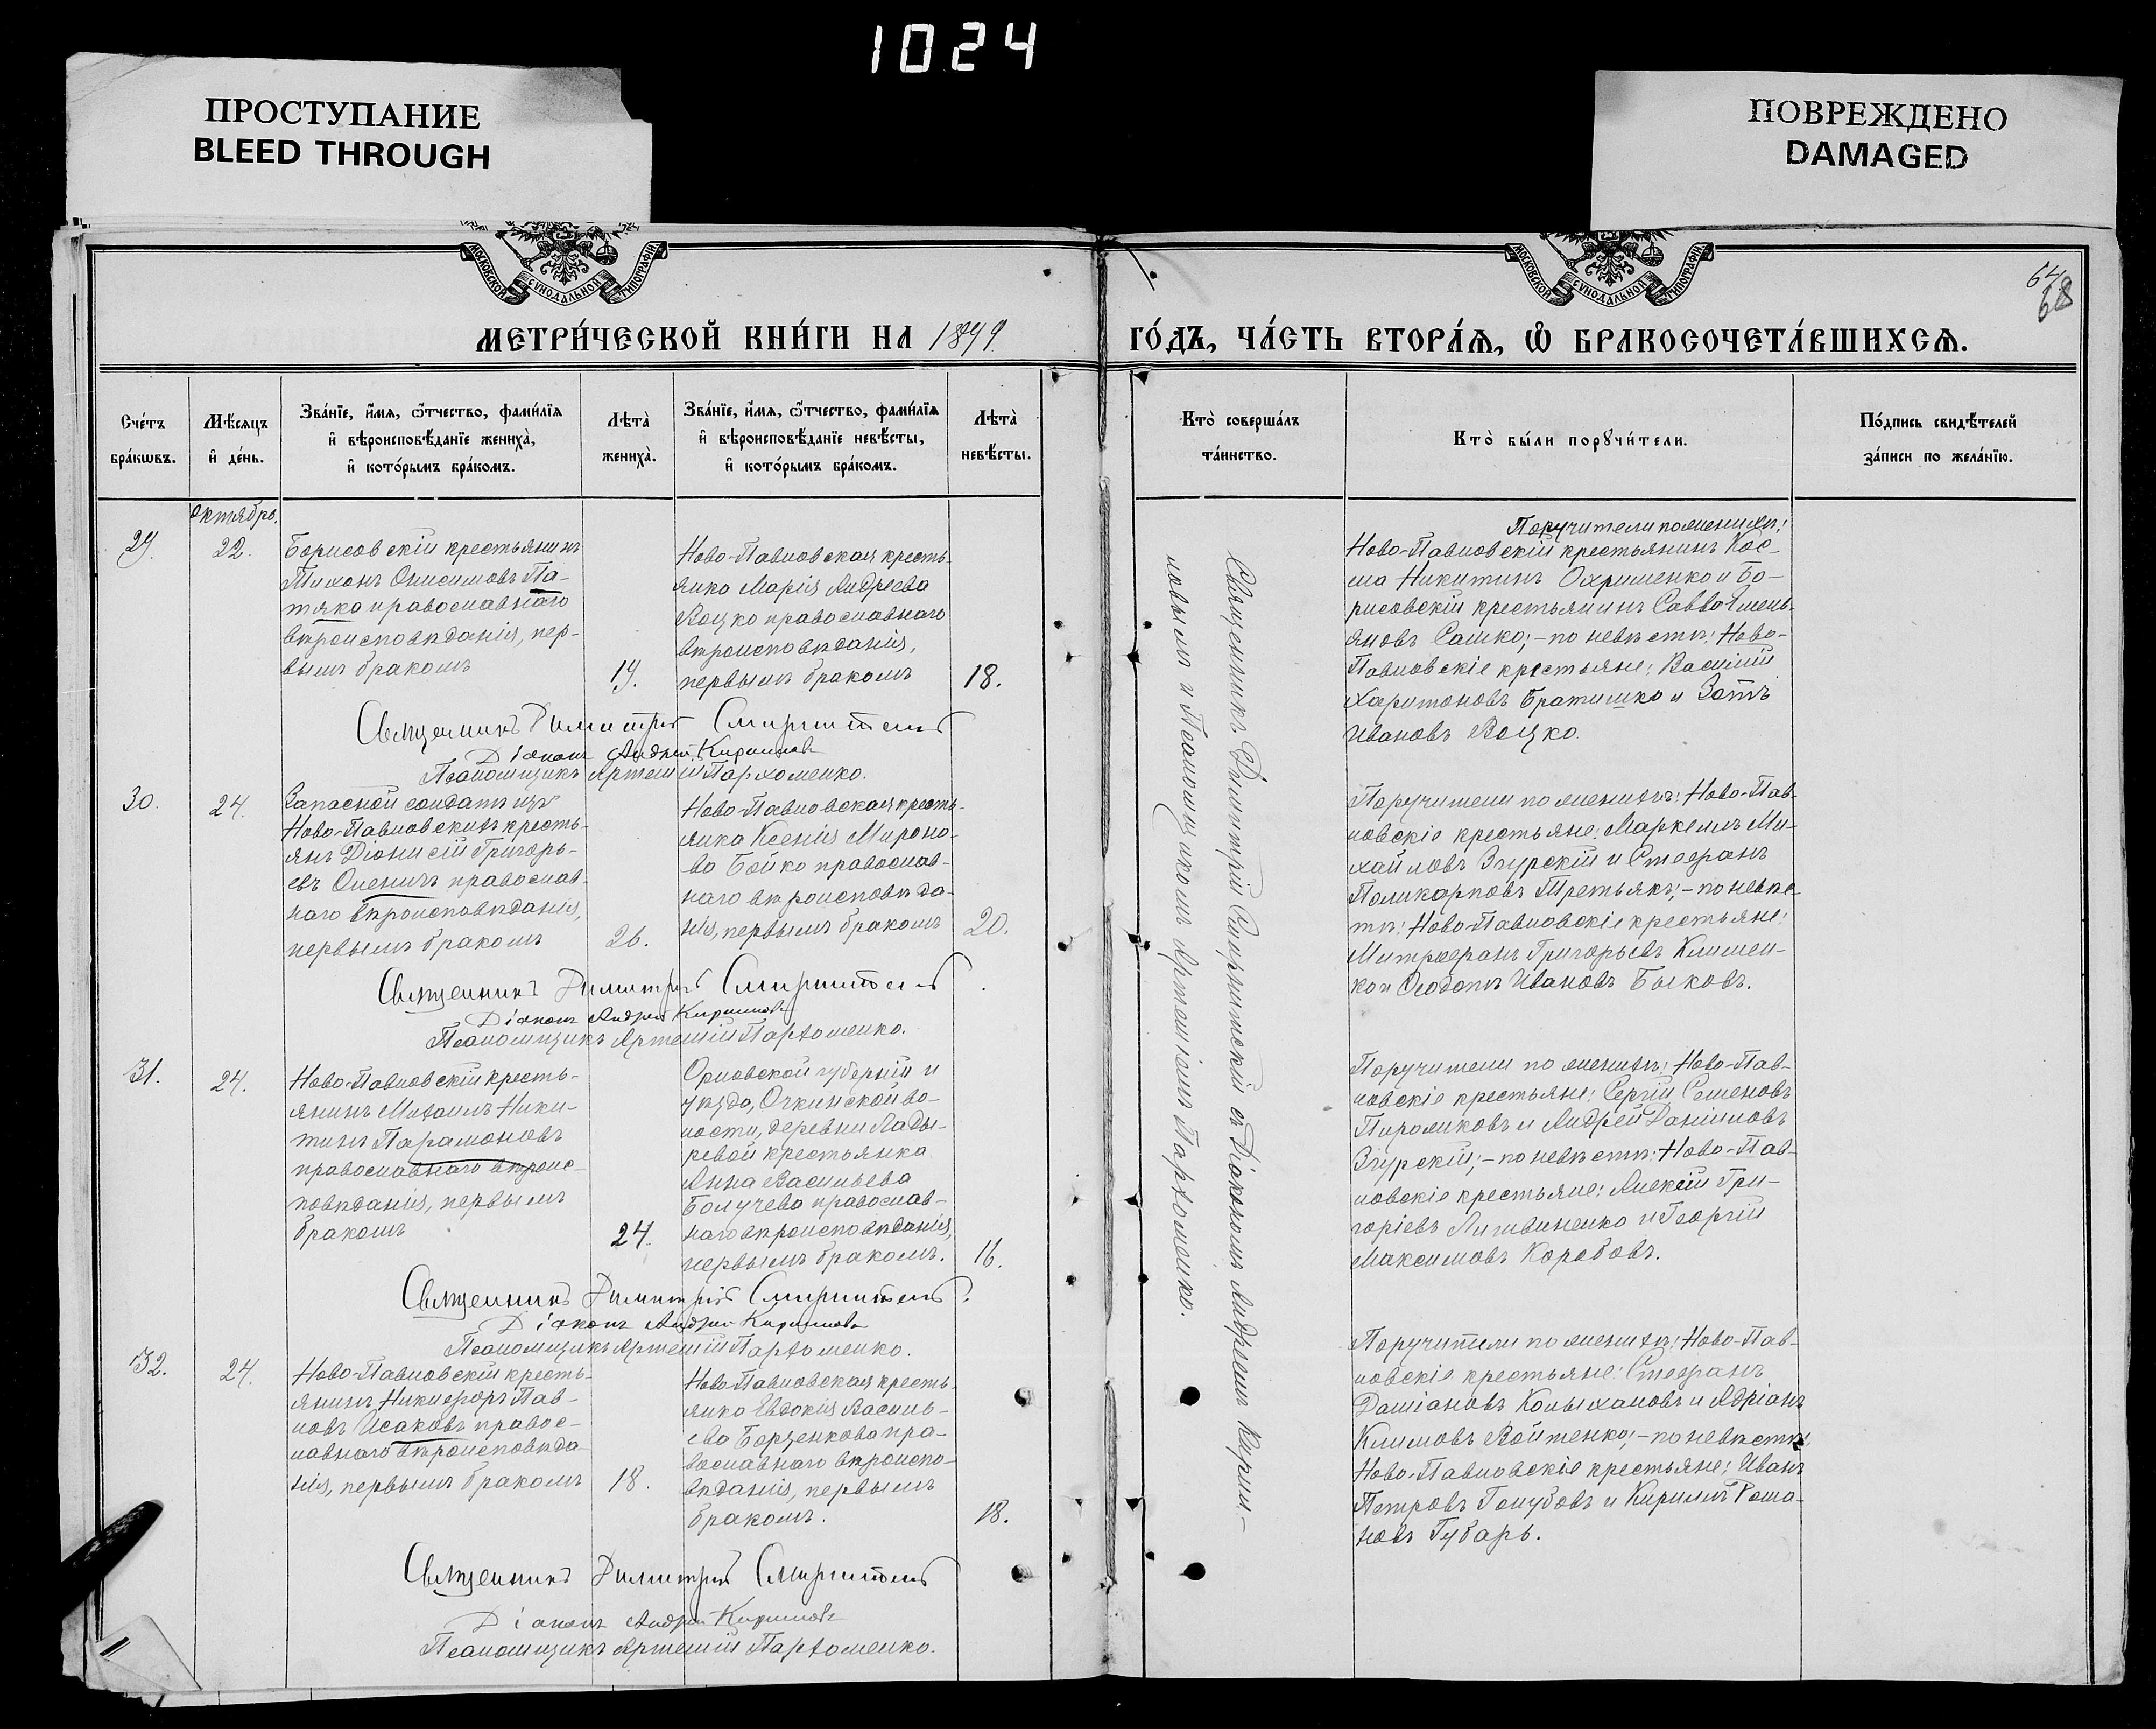 1024
ПРОСТУПАНИЕ
BLEED THROUGH
ПОВРЕЖДЕНО
DAMAGED
МОСКОВСКОЙ СѴНОДАЛЬНОЙ ТИПОГРАФІИ
МОСКОВСКОЙ СѴНОДАЛЬНОЙ ТИПОГРАФІИ
64.
68
МЕТРИ́ЧЕСКОЙ КНИ́ГИ НА 1899
ГО́ДЪ, ЧА́СТЬ ВТОРА́Ѧ, Ѽ БРАКОСОЧЕТА́ВШИХСѦ.
Сче́тъ
бра́кѡвъ.
Мѣ́сѧцъ
и҆ де́нь.
Зва́нїе, и҆́мѧ, ѻ҆́тчество, фами́лїѧ
и҆ вѣроисповѣ́данїе жениха̀,
и҆ кото́рымъ бра́комъ.
Лѣта̀
жениха̀.
Зва́нїе, и҆́мѧ, ѻ҆́тчество, фами́лїѧ
и҆ вѣроисповѣ́данїе невѣ́сты,
и҆ кото́рымъ бра́комъ.
Лѣта̀
невѣ́сты.
Кто̀ соверша́лъ
та́инство.
Кто̀ бы́ли порꙋчи́тели.
По́дпись свидѣ́телей
за́писи по жела́нїю.
Октябрь.
29.
22.
Борисовскій крестьянинъ
Тихонъ Онисимовъ Па-
тяка православнаго
вѣроисповѣданія, пер-
вымъ бракомъ
19.
Ново-Павловская кресть-
янка Марія Андреева
Воцко православнаго
вѣроисповѣданія,
первымъ бракомъ
18.
Поручители по женихѣ:
Ново-Павловскій крестьянинъ Кос-
ма Никитинъ Охрименко и Бо-
рисовскій крестьянинъ Савва Емель-
яновъ Сашко; - по невѣстѣ: Ново-
Павловскіе крестьяне: Василій
Харитоновъ Братишко и Зотъ
Ивановъ Воцко.
Священникъ Димитрій
Діаконъ Андрей Кириловъ
Псаломщикъ Артемій Пархоменко.
30.
24.
Запасной солдатъ изъ
Ново-Павловскихъ кресть-
янъ Діонисій Григорь-
евъ Оленичъ православ-
наго вѣроисповѣданія,
первымъ бракомъ
26.
Ново-Павловская кресть-
янка Ксенія Мироно-
ва Бойко православ-
наго вѣроисповѣда-
нія, первымъ бракомъ
20.
Поручители по женихѣ: Ново-Пав-
ловскіе крестьяне: Маркеллъ Ми-
хайловъ Згурскій и Стефанъ
Поликарповъ Третьякъ; - по невѣс-
тѣ: Ново-Павловскіе крестьяне:
Митрофанъ Григорьевъ Климен-
ко и Ѳеодотъ Ивановъ Быковъ.
Священникъ Димитрій
Діаконъ Андрей Кириловъ
Псаломщикъ Артемій Пархоменко.
31.
24.
Ново-Павловскій кресть-
янинъ Михаилъ Ники-
тинъ Парамоновъ
православнаго вѣроис-
повѣданія, первымъ
бракомъ
24.
Орловской губерніи и
уѣзда, Очкинской во-
лости, деревни Лады-
ревой крестьянка
Анна Васильева
Болучева православ-
наго вѣроисповѣданія,
первымъ бракомъ.
16.
Поручители по женихѣ: Ново-Пав-
ловскіе крестьяне: Сергій Семеновъ
Пирожковъ и Андрей Даніиловъ
Згурскій; - по невѣстѣ: Ново-Пав-
ловскіе крестьяне: Алексій Гри-
горіевъ Литвиненко и Георгій
Максимовъ Коробовъ.
Священникъ Димитрій
Діаконъ Андрей Кириловъ
Псаломщикъ Артемій Пархоменко.
32.
24.
Ново-Павловскій кресть-
янинъ Никифоръ Пав-
ловъ Исаковъ правос-
лавнаго вѣроисповѣда
нія, первымъ бракомъ
18.
Ново-Павловская кресть-
янка Евдокія Василь-
ева Борзенкова пра-
вославнаго вѣроиспо-
вѣданія, первымъ
бракомъ.
18.
Поручители по женихѣ: Ново-Пав-
ловскіе крестьяне: Стефанъ
Даміановъ Колыхановъ и Адріанъ
Климовъ Войтенко; - по невѣстѣ:
Ново-Павловскіе крестьяне: Иванъ
Петровъ Голубовъ и Кириллъ Рома-
новъ Губарь.
Священникъ Димитрій
Діаконъ Андрей Кириловъ
Псаломщикъ Артемій Пархоменко.
Священникъ Димитрій съ Діакономъ Андреемъ Кирил-
ловымъ и Псаломщикомъ Артеміемъ Пархоменко.